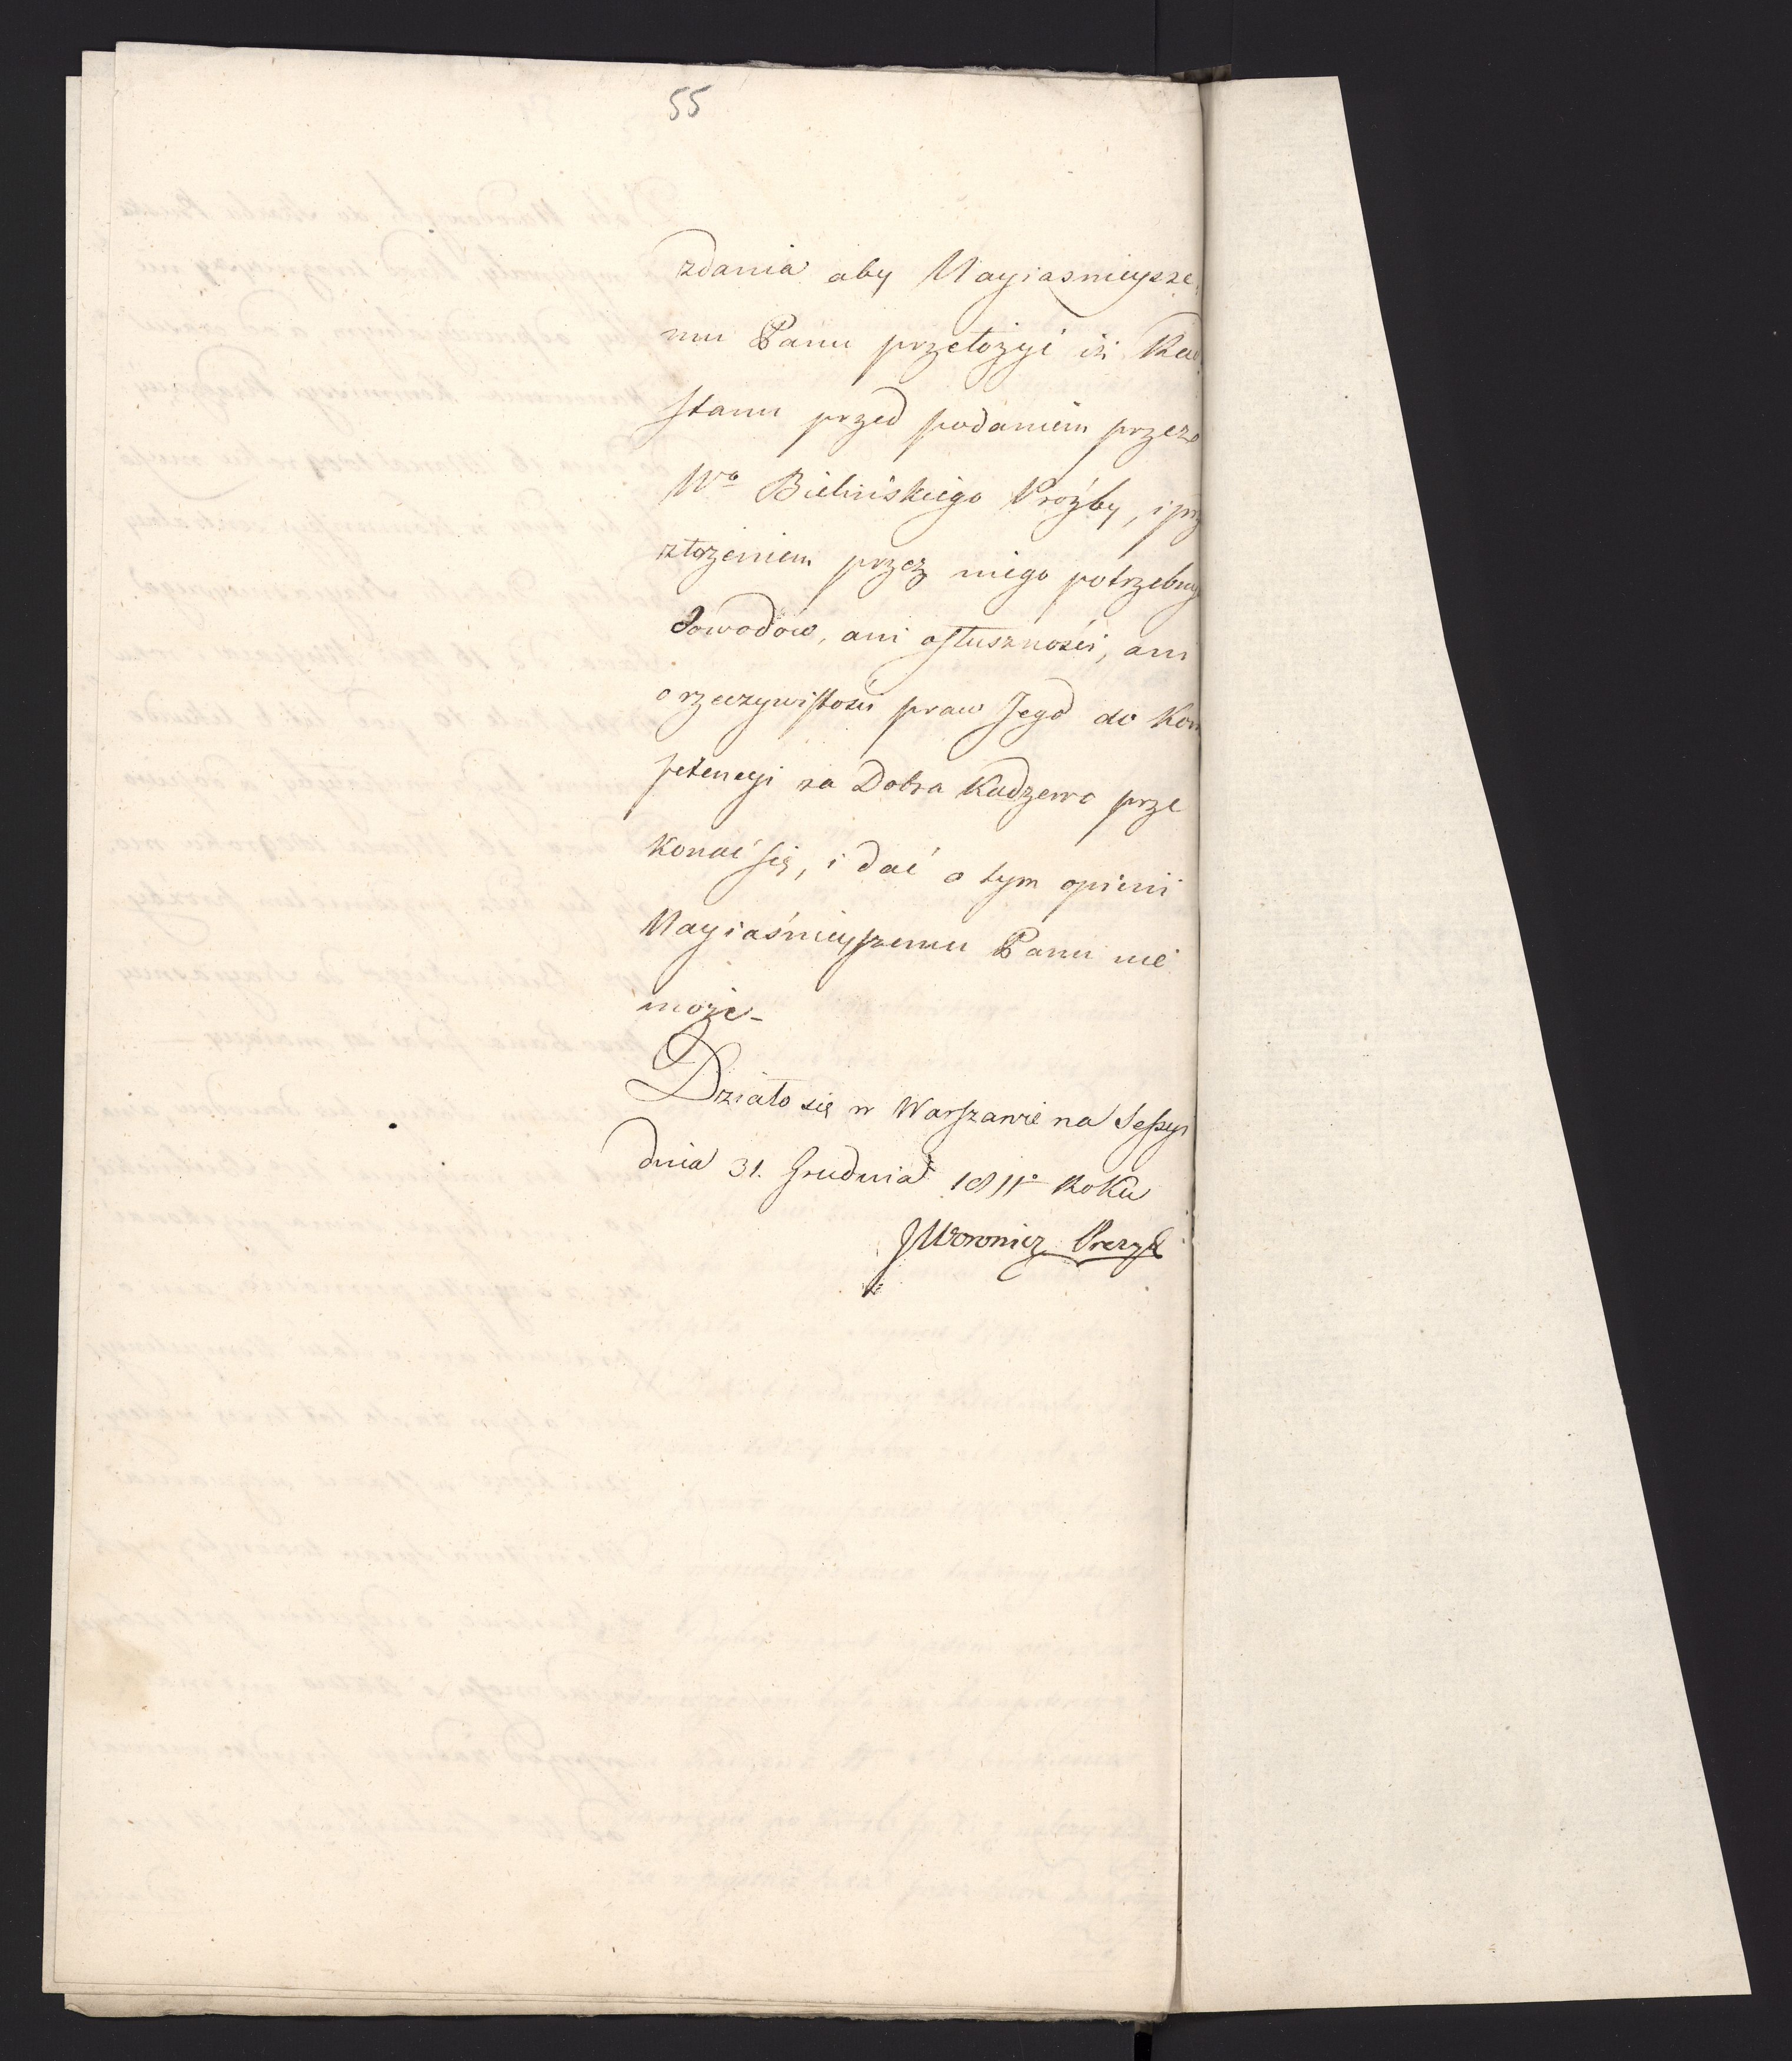 55
zdania aby Nayiasnieysze,
mu Panu przełożyć iż Rad
Stanu przed podaniem przez
Wo Bielińskiego Prożby, i prz
złożeniem przez niego potrzebny
dowodow, ani o słuszności, ani
o rzeczywistości praw Jego do Kom
petencyi za Dobra Kadzewo prze
konać się, i dać o tym opinii
Nayiaśnieyszemu Panu nie
może_
Działo się w Warszawie na Sessyi
dnia 31. Grudnia 1811o Roku
JWoronicz Prezyd